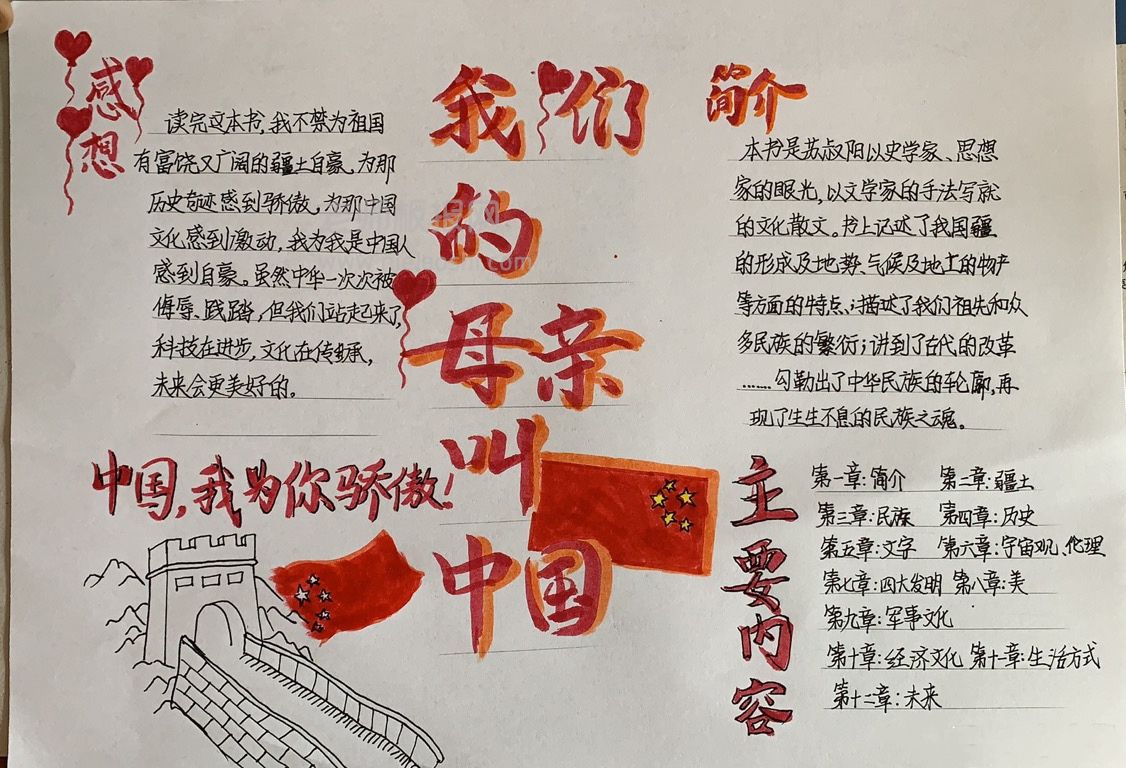 感想
读完这本书,我不禁为祖国
有富饶又广阔的疆土自豪。为那
历史奇迹感到骄傲。为那中国
文化感到激动,我为我是中国人
感到自豪。虽然中华一次次被
侮辱、践踏,但我们站起来了,
科技在进步,文化在传承,
未来会更美好的。
中国,我为你骄傲!
我们
的
母亲
叫
中国
简介
本书是苏叔阳以史学家、思想
家的眼光,以文学家的手法写就
的文化散文。书上记述了我国疆
的形成及地势、气候及地上的物产
等方面的特点;描述了我们祖先和众
多民族的繁衍;讲到了古代的改革
……勾勒出了中华民族的轮廓,再
现了生生不息的民族之魂。
主要内容
第一章:简介 第二章:疆土
第三章:民族 第四章:历史
第五章:文字 第六章:宇宙观、伦理
第七章:四大发明 第八章:美
第九章:军事文化
第十章:经济文化 第十一章:生活方式
第十二章:未来